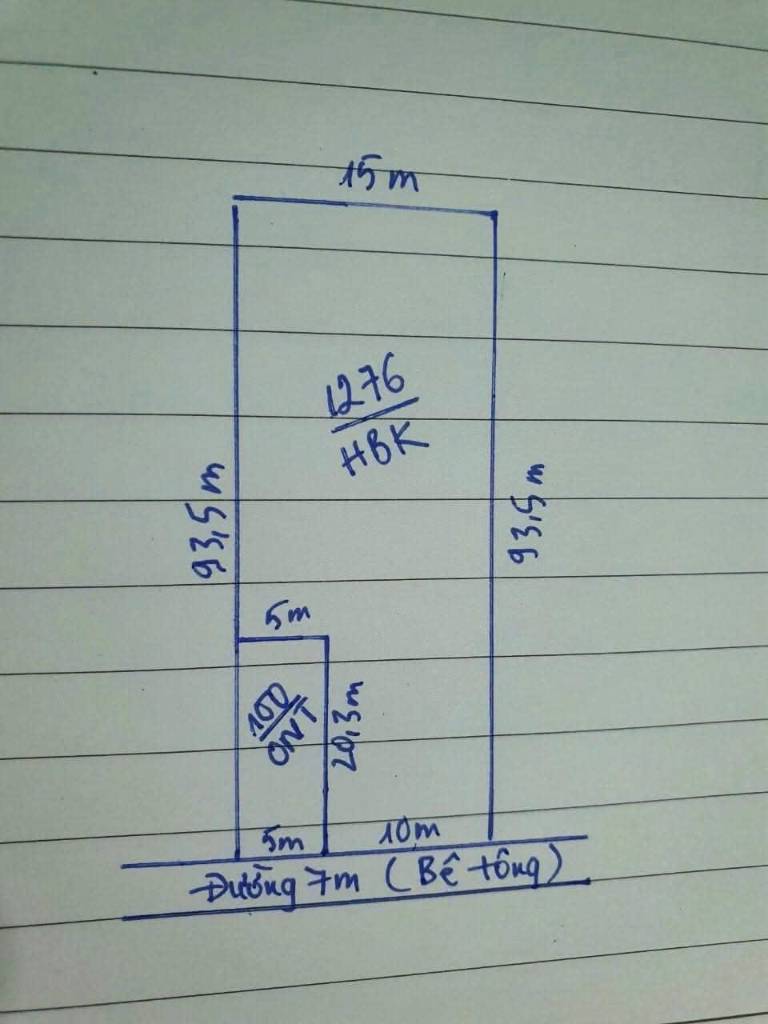 15 m
1276
HBK
93,5 m
93,5 m
5m
100
ONT
20,3m
5m
10m
Đường 7m (Bê tông)